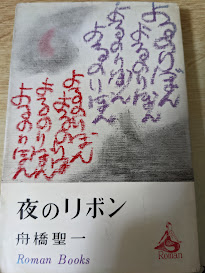 よるのりぼん
よるのりぼん
よるのりぼん
よるのりぼん
よるのりぼん
よるのりぼん
よるのりぼん
夜のリボン
舟橋聖一
Roman Books
Roman